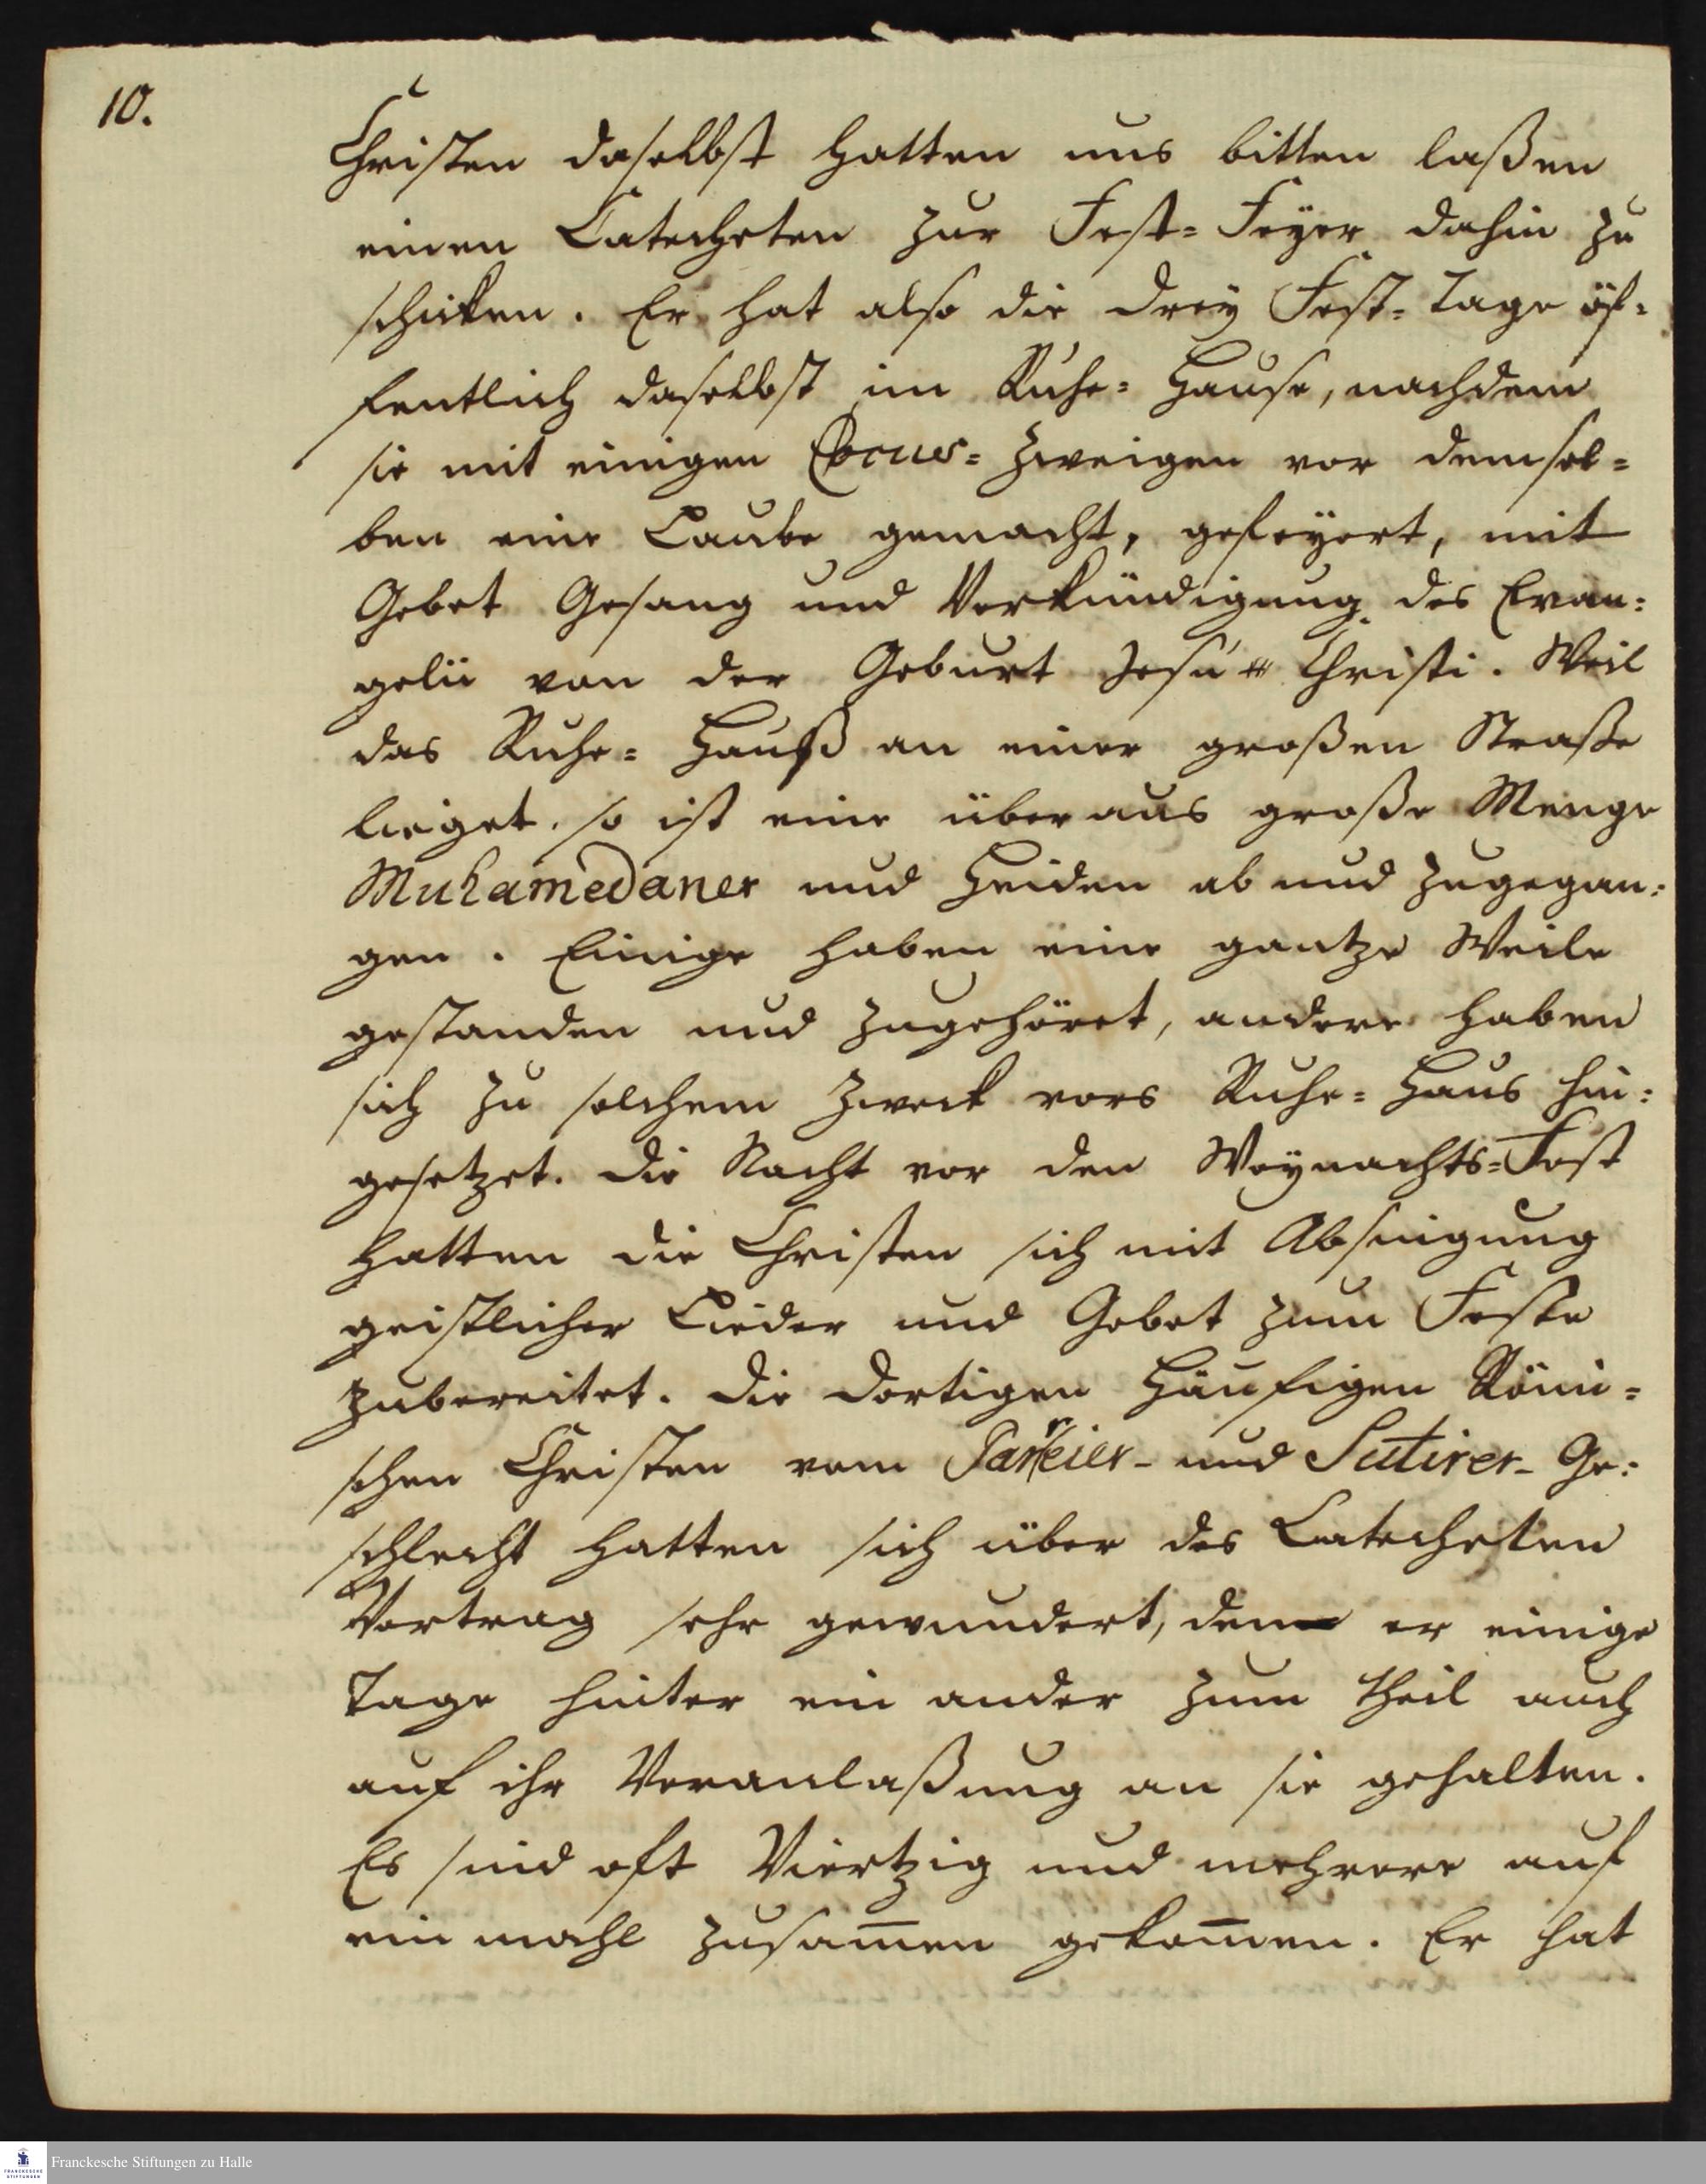 10.
Christen daselbst hatten uns bitten laßen
einen Catecheten zur Fest= Feyer dahin zu
schicken. Er hat also die drey Fest= Tage öf=
fentlich daselbst im Ruhe= Hause, nachdem
sie mit einigen Cocus= Zweigen vor demsel=
ben eine Laube gemacht, gefeyert, mit
Gebet Gesang und Verkündigung des Evan=
gelii von der Geburt Jesu Christi. Weil
das Ruhe= Hauß an einer großen Straße
lieget, so ist eine überaus große Menge
Muhamedaner und Heiden ab und zugegan=
gen. Einige haben eine gantze Weile
gestanden und zugehöret, andere haben
sich zu solchem Zweck vors Ruhe= Haus hin=
gesetzet. Die Nacht vor den Weynachts= Fest
hatten die Christen sich mit Absingung
geistlicher Lieder und Gebet zum Feste
zubereitet. Die dortigen häufigen Römi=
schen Christen vom Parreier- und Sutirer- Ge=
schlecht hatten sich über des Catecheten
Vortrag sehr gewundert, den er einige
Tage hinter ein ander zum Theil auch
auf ihr Veranlaßung an sie gehalten.
Es sind oft Viertzig und mehrere auf
ein mahl zusam̅en gekom̅en. Er hat
Franckesche Stiftungen zu Halle